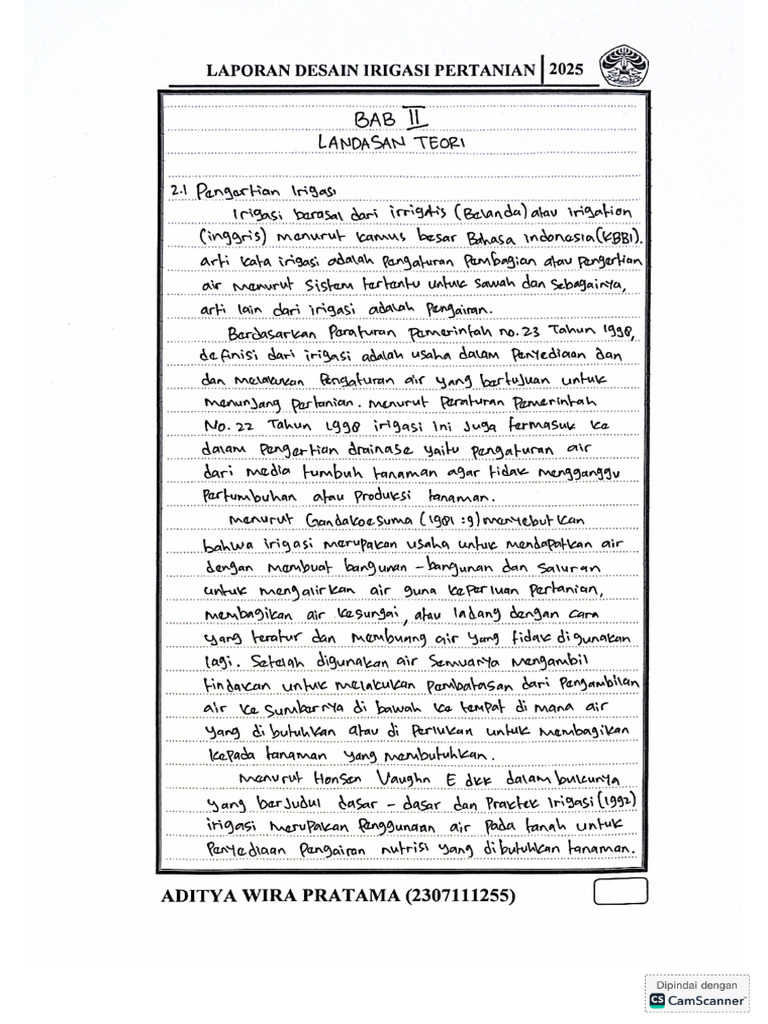 LAPORAN DESAIN IRIGASI PERTANIAN | 2025
BAB II
LANDASAN TEORI
2.1 Pengertian Irigasi
Irigasi berasal dari irrigatis (Belanda) atau irigation
(inggris) menurut kamus besar Bahasa Indonesia (KBBI).
arti kata irigasi adalah pengaturan pembagian atau pengertian
air menurut sistem tertentu untuk sawah dan sebagainya,
arti lain dari irigasi adalah pengairan.
Berdasarkan Peraturan pemerintah no. 23 Tahun 1998,
definisi dari irigasi adalah usaha dalam penyediaan dan
dan melakukan pengaturan air yang bertujuan untuk
menunjang pertanian. menurut peraturan pemerintah
No. 22 Tahun 1998 irigasi ini juga termasuk ke
dalam pengertian drainase yaitu pengaturan air
dari media tumbuh tanaman agar tidak mengganggu
pertumbuhan atau produksi tanaman.
menurut Gandakoesuma (1981 : 9) menyebutkan
bahwa irigasi merupakan usaha untuk mendapatkan air
dengan membuat bangunan - bangunan dan saluran
untuk mengalirkan air guna keperluan pertanian,
membagikan air kesungai, atau ladang dengan cara
yang teratur dan membuang air yang tidak digunakan
lagi. Setelah digunakan air semuanya mengambil
tindakan untuk melakukan pembatasan dari pengambilan
air ke sumbernya di bawah ke tempat di mana air
yang dibutuhkan atau di perlukan untuk membagikan
kepada tanaman yang membutuhkan.
Menurut Honsen Vaughn E dkk dalam bukunya
yang berjudul dasar - dasar dan praktek irigasi (1992)
irigasi merupakan penggunaan air pada tanah untuk
penyediaan pengairan nutrisi yang dibutuhkan tanaman.
ADITYA WIRA PRATAMA (2307111255)
Dipindai dengan
CS CamScanner